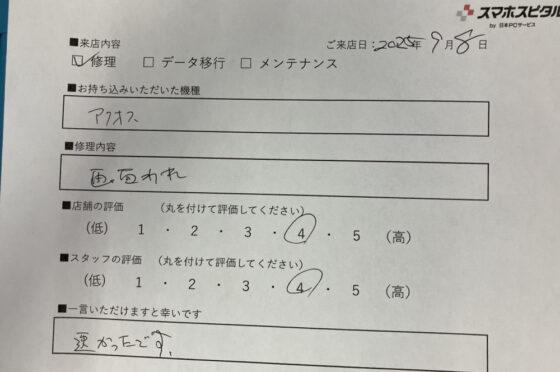 スマホスピタル
by 日本PCサービス
■来店内容
ご来店日:2025年9月8日
☑ 修理 □ データ移行 □ メンテナンス
■お持ち込みいただいた機種
アクオス
■修理内容
画面われ
■店舗の評価 (丸を付けて評価してください)
(低) 1 ・ 2 ・ 3 ・ 4 ・ 5 (高)
■スタッフの評価 (丸を付けて評価してください)
(低) 1 ・ 2 ・ 3 ・ 4 ・ 5 (高)
■一言いただけますと幸いです
速かったです。